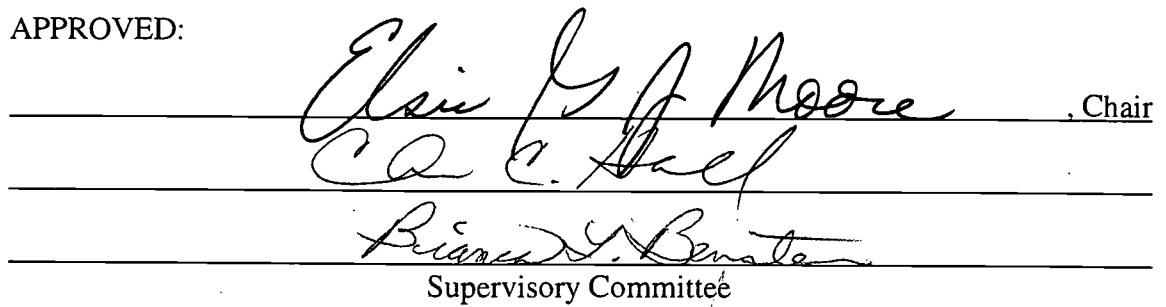 APPROVED:
Elsie G J Moore, Chair
C. Hall
Bianca L. Bernstein
Supervisory Committee